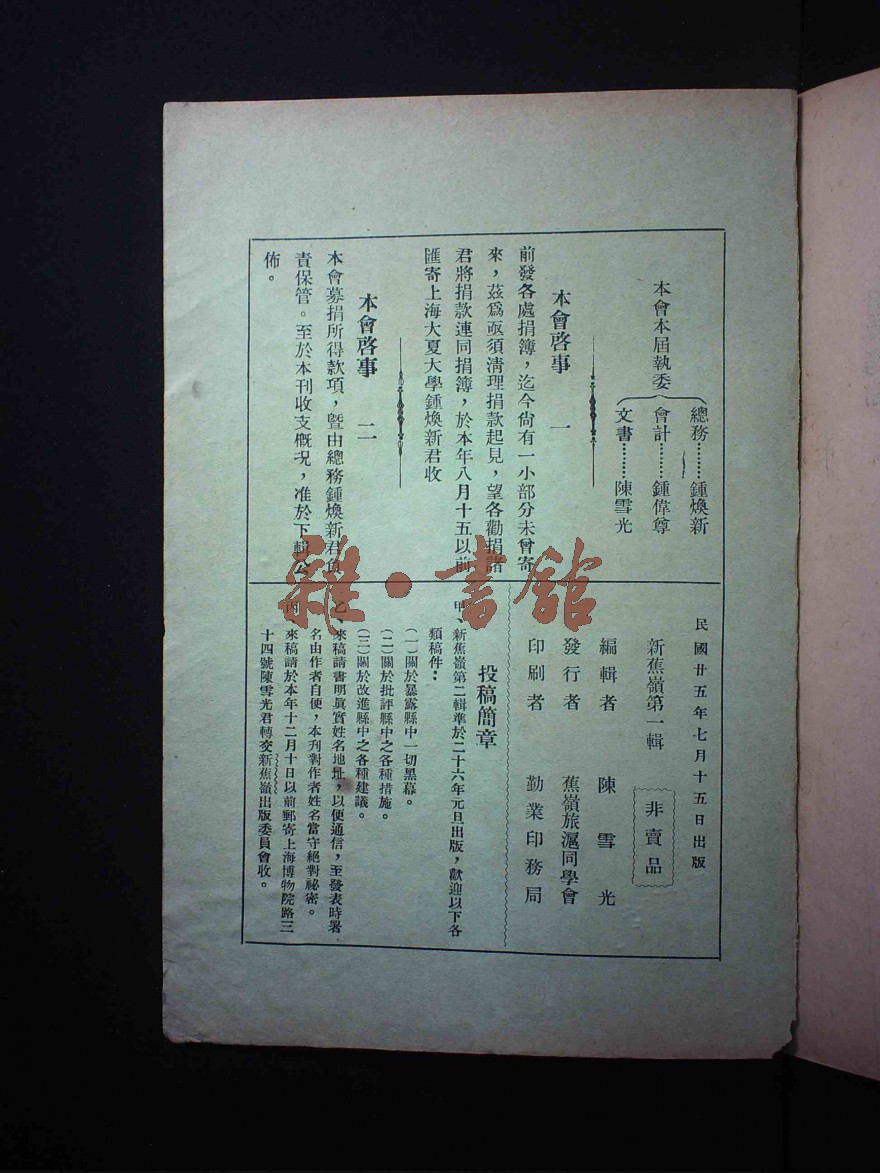 本會本屆執委
總務………鍾煥新
會計………鍾偉尊
文書………陳雪光
本會啓事 一
前發各處捐簿，迄今尙有一小部分未曾寄
來，茲爲亟須淸理捐款起見，望各勸捐諸
君將捐款連同捐簿，於本年八月十五以前
匯寄上海大夏大學鍾煥新君收
本會啓事 二
本會募捐所得款項，曁由總務鍾煥新君負
責保管。至於本刊收支概況，准於下輯公
佈。
民國廿五年七月十五日出版
新蕉嶺第一輯 非賣品
編輯者 陳雪光
發行者 蕉嶺旅滬同學會
印刷者 勤業印務局
投稿簡章
甲、新蕉嶺第二輯準於二十六年元旦出版，歡迎以下各
類稿件：
(一)關於暴露縣中一切黑幕。
(二)關於批評縣中之各種措施。
(三)關於改進縣中之各種建議。
乙、來稿請書明眞實姓名地址，以便通信，至發表時署
名由作者自便，本刊對作者姓名當守絕對祕密。
丙、來稿請於本年十二月十日以前郵寄上海博物院路三
十四號陳雪光君轉交新蕉嶺出版委員會收。
雜·書館